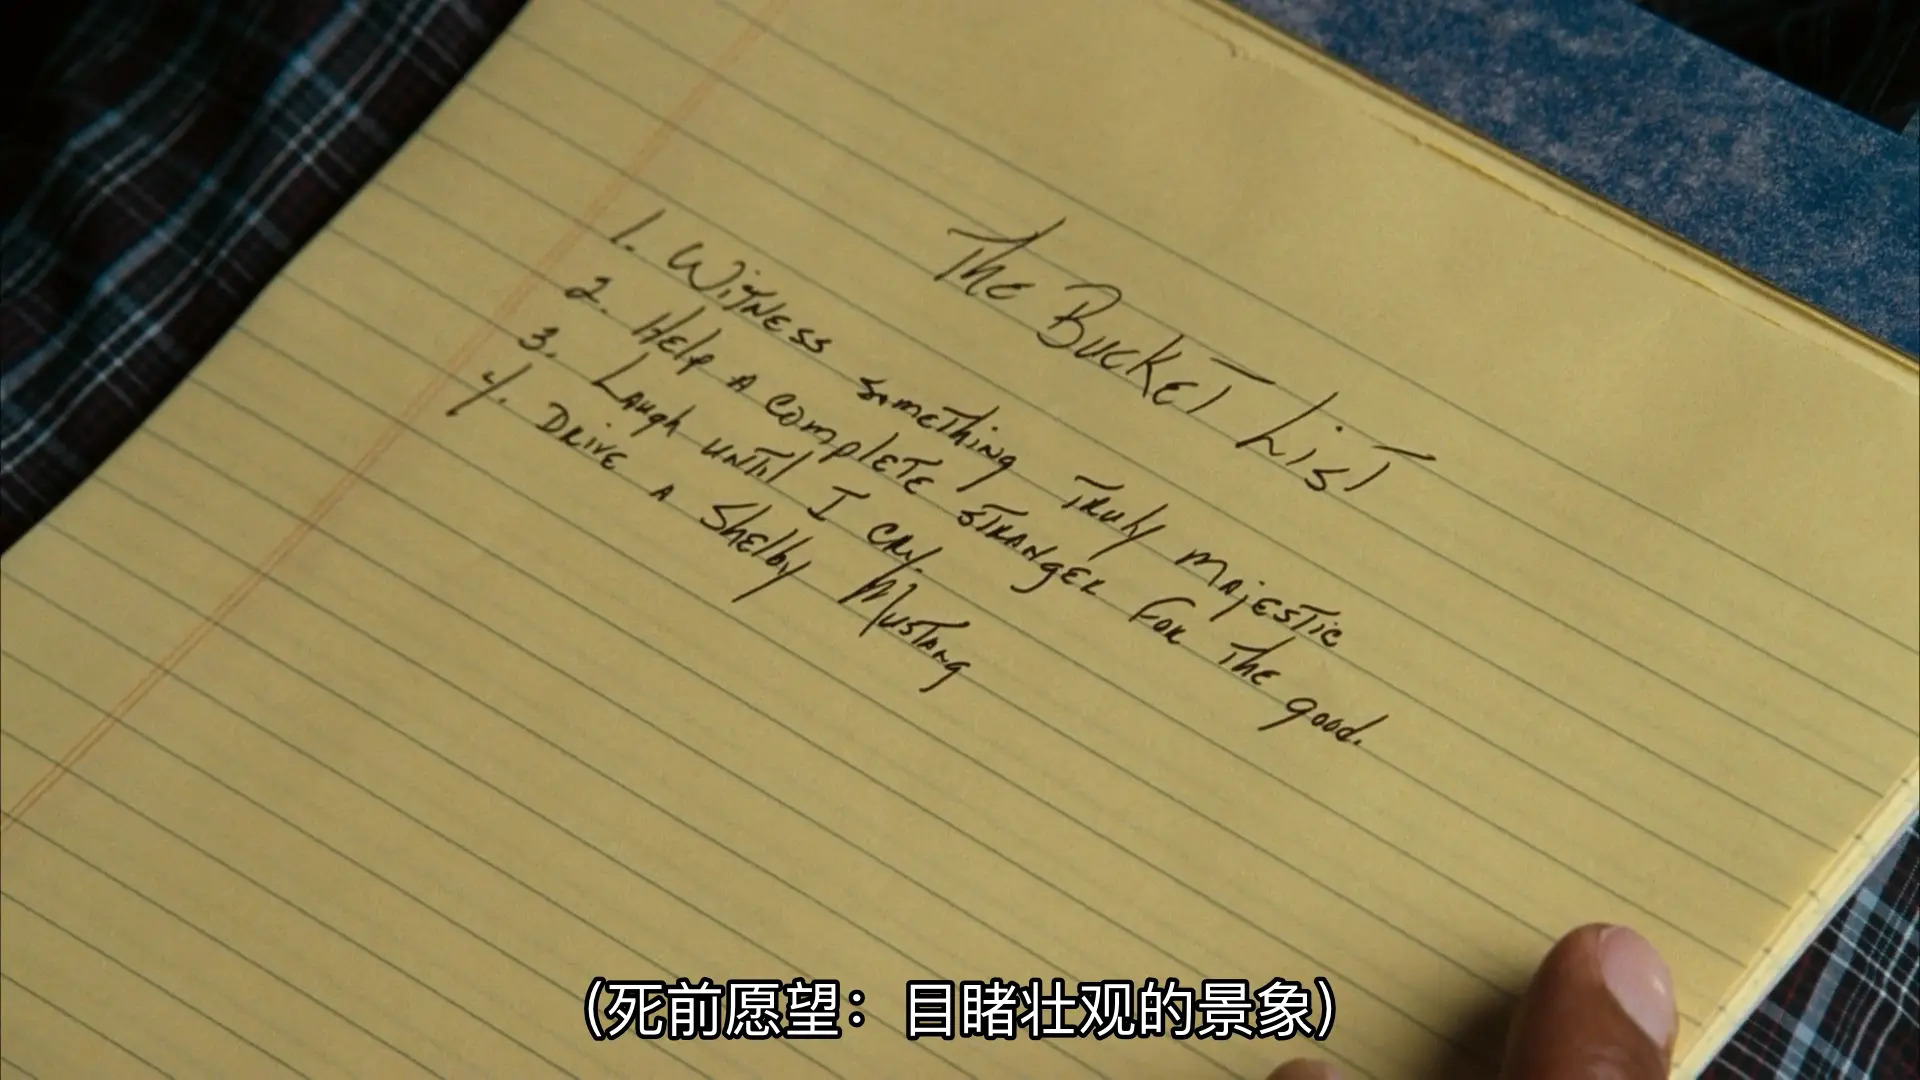 The Bucket List
1. Witness something truly majestic
2. Help a complete stranger for the good.
3. Laugh until I cry.
4. Drive a Shelby Mustang
（死前愿望：目睹壮观的景象）